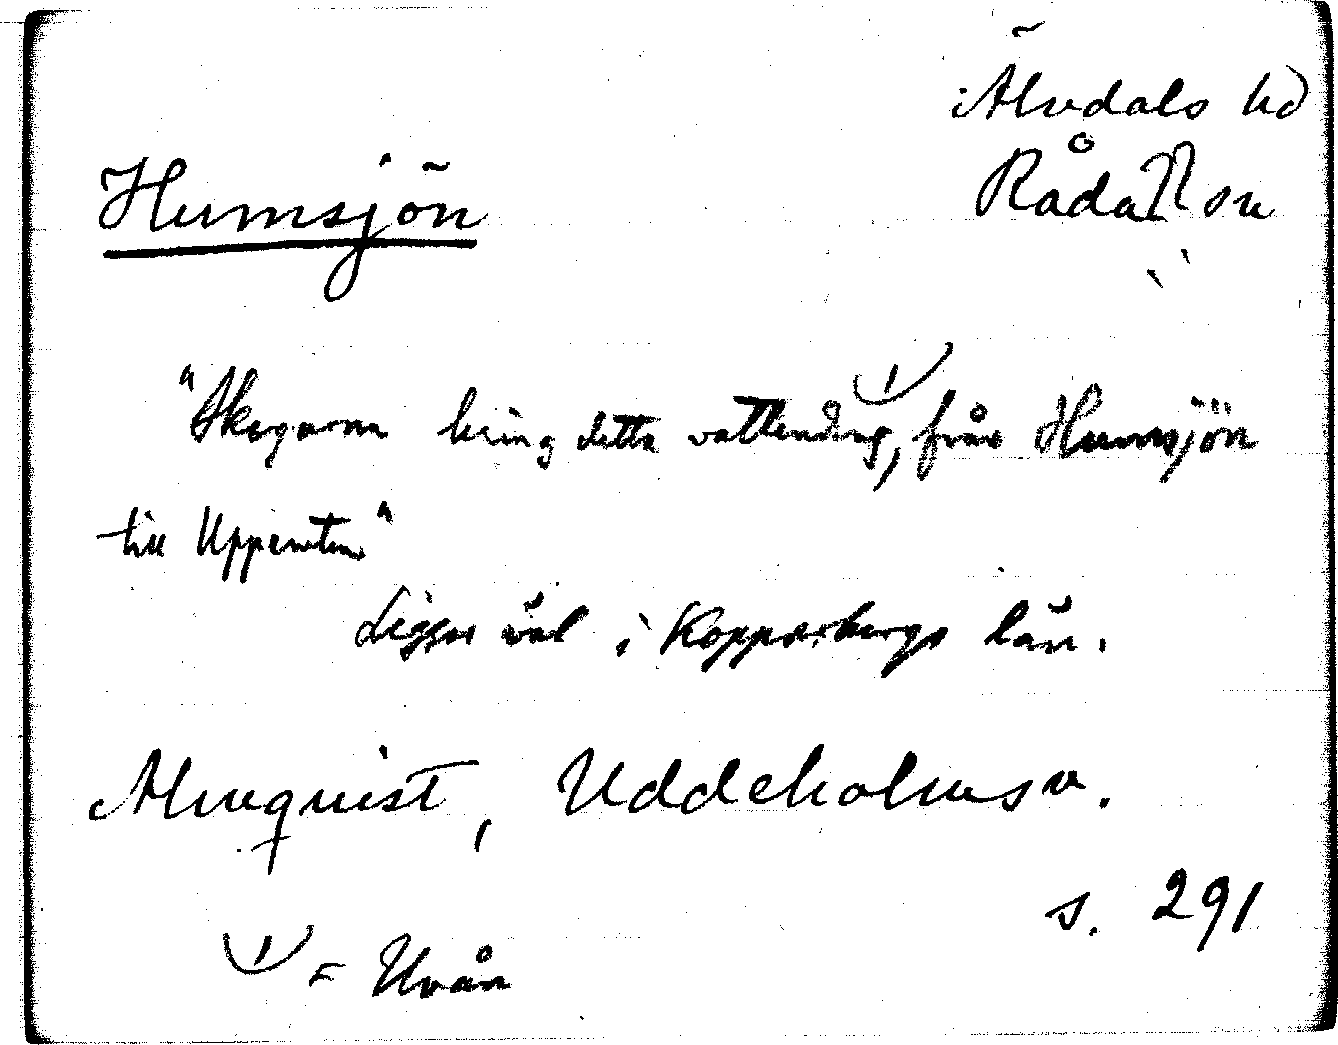 Älvdals hd
Råda sn
Humsjön
"Skogarna kring detta vattendrag, från Humsjön
till Uppsistern"
Ligger väl i Kopparbergs län.
Almquist, Uddeholmsv.
s. 291
1) = Uvån